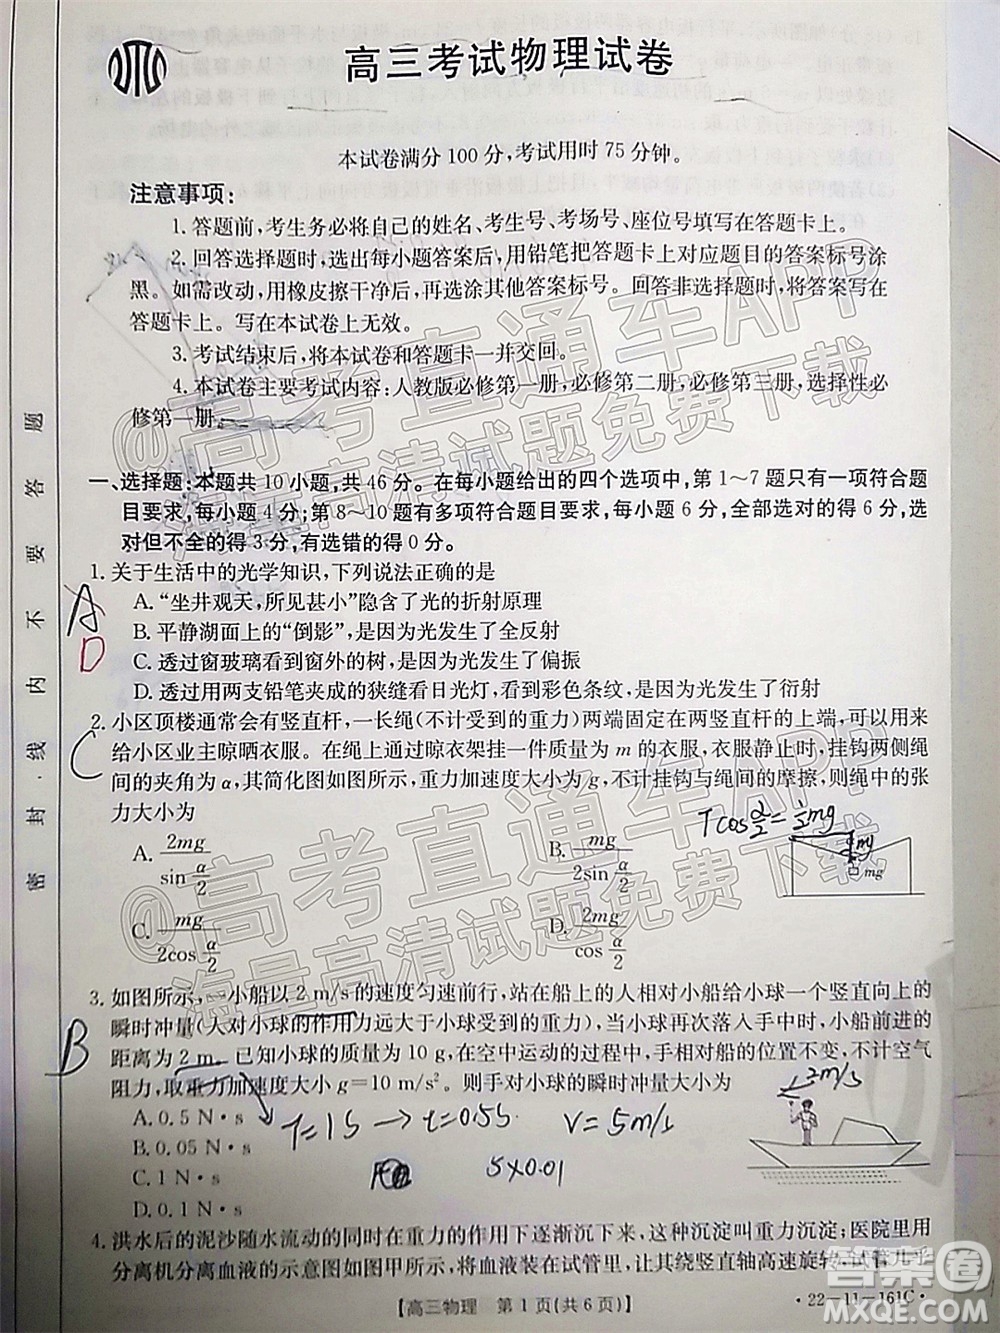 高三考试物理试卷
本试卷满分100分,考试用时75分钟。
注意事项:
1. 答题前,考生务必将自己的姓名、考生号、考场号、座位号填写在答题卡上。
2. 回答选择题时,选出每小题答案后,用铅笔把答题卡上对应题目的答案标号涂
黑。如需改动,用橡皮擦干净后,再选涂其他答案标号。回答非选择题时,将答案写在
答题卡上。写在本试卷上无效。
3. 考试结束后,将本试卷和答题卡一并交回。
4. 本试卷主要考试内容:人教版必修第一册,必修第二册,必修第三册,选择性必
修第一册。
一、选择题:本题共10小题,共46分。在每小题给出的四个选项中,第1~7题只有一项符合题
目要求,每小题4分;第8~10题有多项符合题目要求,每小题6分,全部选对的得6分,选
对但不全的得3分,有选错的得0分。
1. 关于生活中的光学知识,下列说法正确的是
A. “坐井观天,所见甚小”隐含了光的折射原理
B. 平静湖面上的“倒影”,是因为光发生了全反射
C. 透过窗玻璃看到窗外的树,是因为光发生了偏振
D. 透过用两支铅笔夹成的狭缝看日光灯,看到彩色条纹,是因为光发生了衍射
A
D
2. 小区顶楼通常会有竖直杆,一长绳(不计受到的重力)两端固定在两竖直杆的上端,可以用来
给小区业主晾晒衣服。在绳上通过晾衣架挂一件质量为m的衣服,衣服静止时,挂钩两侧绳
间的夹角为α,其简化图如图所示,重力加速度大小为g,不计挂钩与绳间的摩擦,则绳中的张
力大小为
C
A. 2mg/sin α/2
B. mg/2sin α/2
C. mg/2cos α/2
D. 2mg/cos α/2
Tcos α/2 = 1/2 mg
mg
mg
3. 如图所示,一小船以2 m/s的速度匀速前行,站在船上的人相对小船给小球一个竖直向上的
瞬时冲量(人对小球的作用力远大于小球受到的重力),当小球再次落入手中时,小船前进的
距离为2 m。已知小球的质量为10 g,在空中运动的过程中,手的高度不变,不计空气
阻力,取重力加速度大小g=10 m/s²。则手对小球的瞬时冲量大小为
B
A. 0.5 N·s
B. 0.05 N·s
C. 1 N·s
D. 0.1 N·s
T=1s → t=0.5s
V=5m/s
5×0.01
2m/s
4. 洪水后的泥沙随水流动的同时在重力的作用下逐渐沉下来,这种沉淀叫重力沉淀;医院里用
分离机分离血液的示意图如图甲所示,将血液装在试管里,让其绕竖直轴高速旋转,试管几乎
【高三物理 第1页(共6页)】
·22-11-161C·
密 封 线 内 不 要 答 题
@高考直通车APP
海量高清试题免费下载
@高考直通车APP
海量高清试题免费下载
答案圈